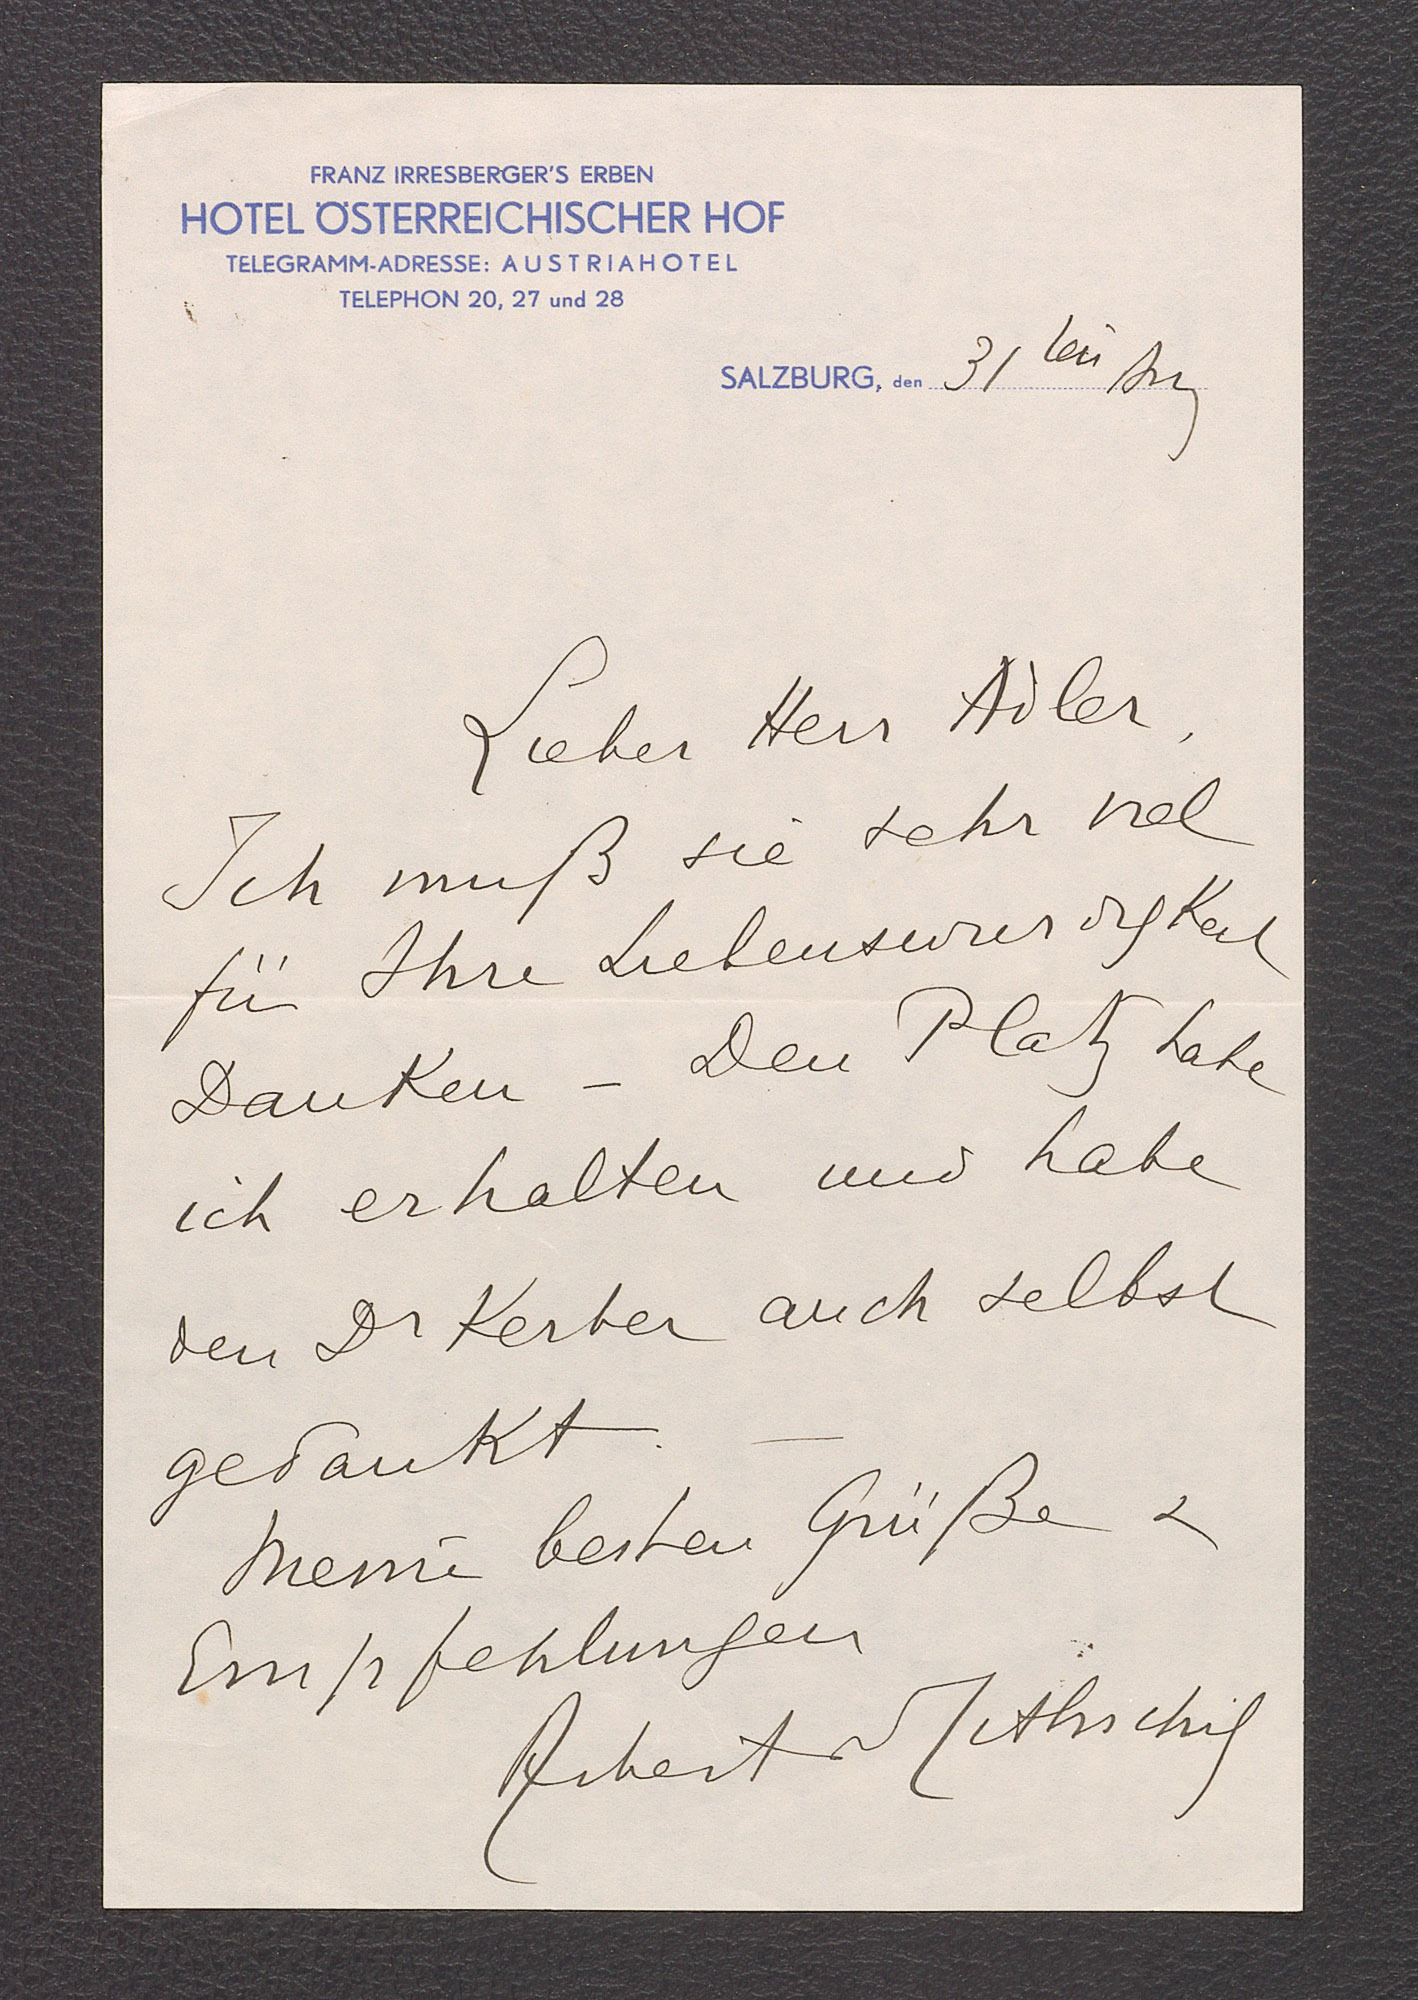 FRANZ IRRESBERGER'S ERBEN
HOTEL ÖSTERREICHISCHER HOF
TELEGRAMM-ADRESSE: AUSTRIAHOTEL
TELEPHON 20, 27 und 28
SALZBURG, den 31
Lieber Herr Adler,
Ich muß sie sehr viel
für Ihre Liebenswurdigkeit
Danken – Den Platz habe
ich erhalten und habe
den Dr Kerber auch selbst
gedankt. —
Meine besten Grüße &
Empfehlungen
Robert